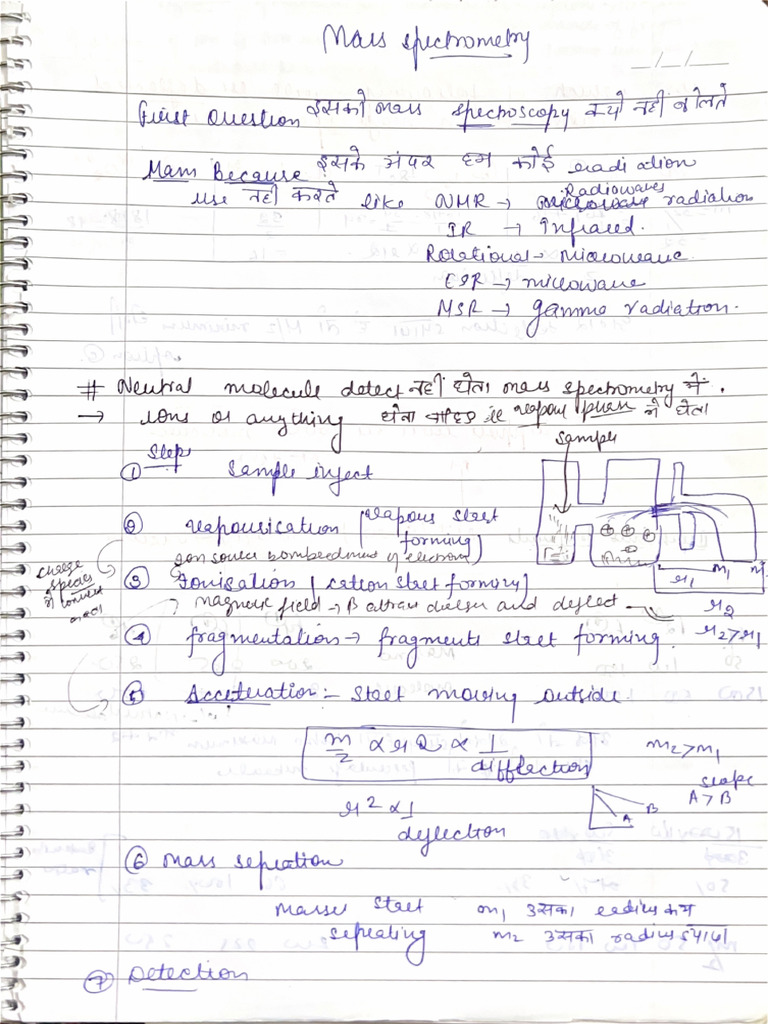 Mass spectrometry
_/_/_
First Question इसको mass spectroscopy क्यों नहीं बोलते
Because इसके अंदर हम कोई radiation
use नहीं करते like NMR → Radiowaves radiation
IR → Infrared.
Rotational → Microwave
ESR → microwave
MSR → gamma radiation.
# Neutral molecule detect नहीं होता mass spectrometry में.
→ Ions or anything होना चाहिए vapour phase में होता
sample
Step
① Sample inject
② vapourisation (vapours start forming)
gon source bombardment of electrons
charge species में convert
③ Ionisation (cation start forming)
magnetic field → B and deflect
r1 m1 m2
r2
r2>r1
④ fragmentation → fragments start forming.
⑤ Acceleration:- start moving outside.
m/z ∝ r2 ∝ 1/diffection
m2>m1
r² ∝ 1/deflection
slope
A > B
A B
⑥ Mass sepration
Masses start sepeating
m1 उसका radius कम
m2 उसका radius ज्यादा
⑦ Detection